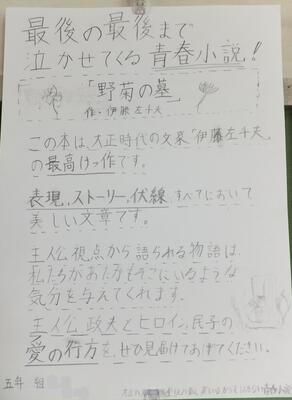 最後の最後まで
泣かせてくる青春小説!
「野菊の墓」
作・伊藤左千夫
この本は、大正時代の文豪「伊藤左千夫」
の最高けっ作です。
表現,ストーリー,伏線,すべてにおいて
美しい文章です。
主人公視点から語られる物語は、
私たちがあたかもそこにいるような
気分を与えてくれます。
主人公,政夫とヒロイン,民子の
愛の行方を、ぜひ見届けてあげてください。
五年 組